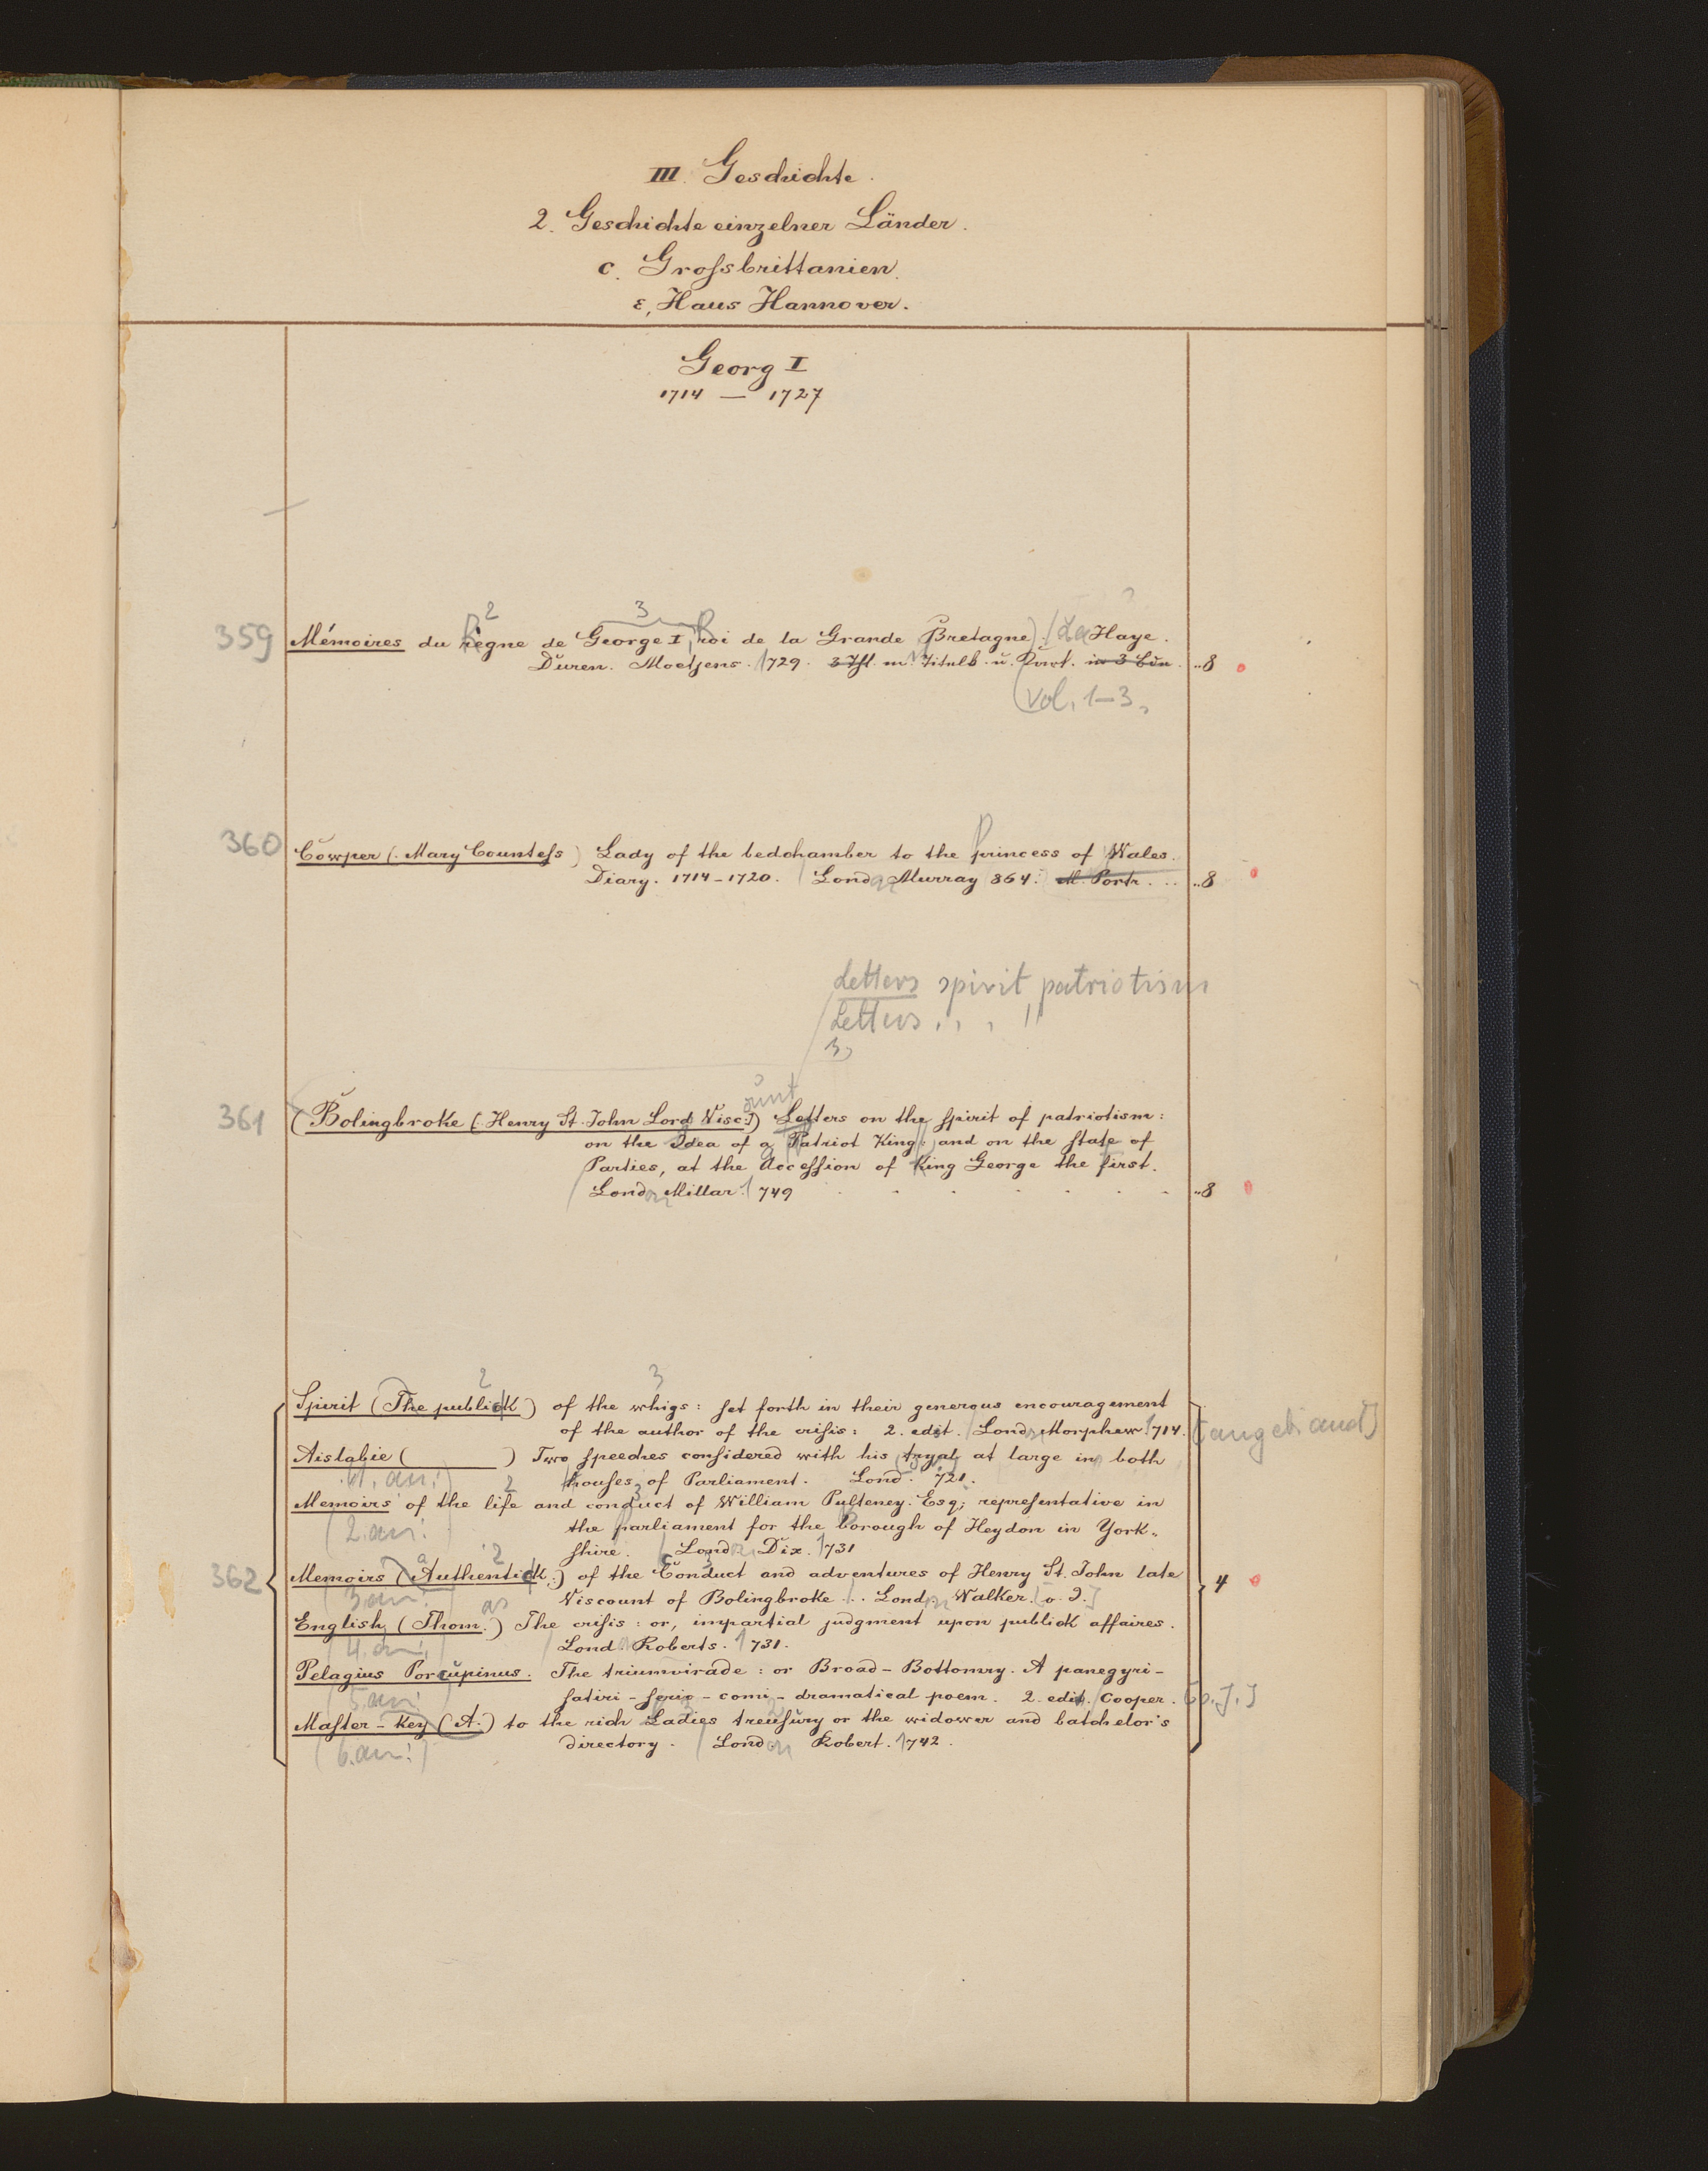 III. Geschichte.
2. Geschichte einzelner Länder.
c. Grofsbrittanien.
ε, Haus Hannover.
Georg I
1714 — 1727
2 3
359 Mémoires du règne de George I, roi de la Grande Bretagne). La Haye.
Düren. Moetjens. 1729. 3 Thl. m. Titulb. u. Port. in 3 Bdn. ..8
(vol. 1-3.
360 Cowper (. Mary Countefs) Lady of the bedchamber to the princess of Wales.
Diary. 1714-1720. London Murray 864. M. Portr. ... ..8
Letters spirit patriotism
Letters
3,
ount
361 (Bolingbroke (. Henry St. John Lord Visc.) Letters on the spirit of patriotism:
on the Idea of a Patriot King, and on the state of
Parties, at the Accefsion of King George the first.
London Millar. 1749 ..8
2 3
Spirit (The publick) of the whigs: set forth in their generous encouragement
of the author of the crisis: 2. edit. London Morphew. 1714. [angeb. and]
Aislabie ( ) Two speeches considered with his tryal at large in both
(1. an:) 2 houses of Parliament. Lond. 721.
Memoirs of the life and conduct of William Pulteney. Esq; representative in
(2. an: the parliament for the borough of Heydon in York-
shire. London Dix. 1731
362 Memoirs (Authentick.) of the Conduct and adventures of Henry St. John late 4
(3. an:) Viscount of Bolingbroke. .. London Walker. [o. J.]
English (Thom.) The crisis: or, impartial judgment upon publick affaires.
(4. an:) Lond. Roberts. 1731.
Pelagius Porcupinus. The triumvirade: or Broad-Bottomry. A panegyri-
(5. an:) satiri-serio-comi-dramatical poem. 2. edit. Cooper. [o. J.]
Master-Key (A.) to the rich Ladies treusury or the widower and batchelor's
(6. an:) directory. London Robert. 1742.